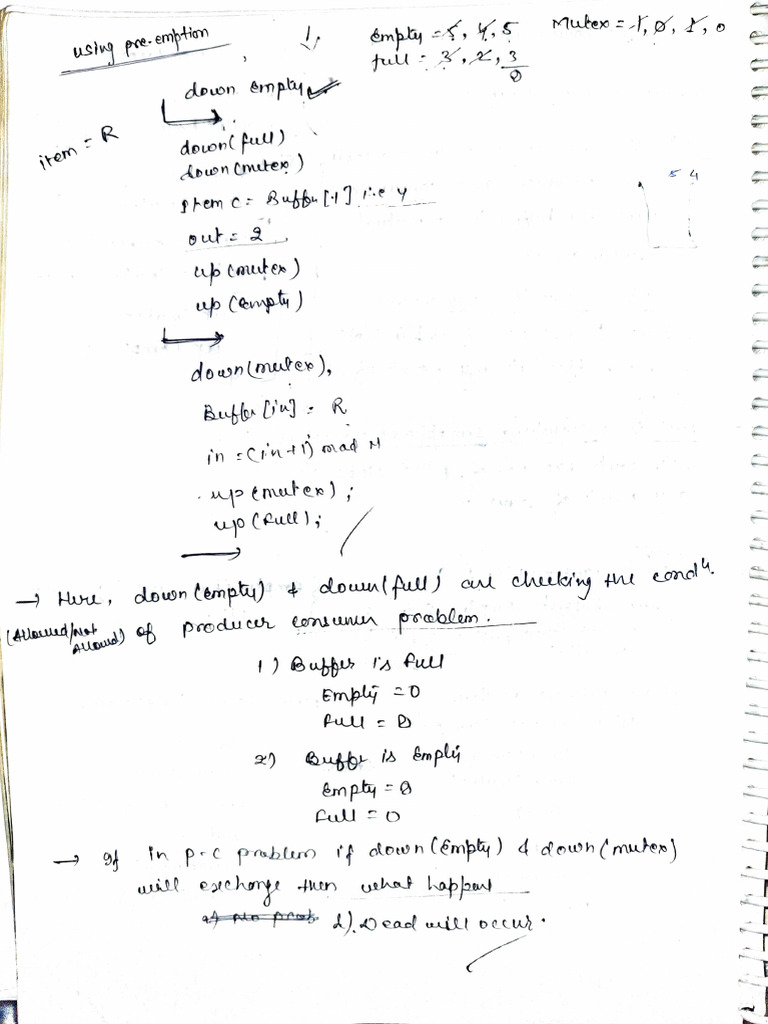 using pre-emption
1.
Empty = 5, 4, 5
full = 3, 2, 3
8
Mutex = 1, 0, 1, 0
down empty
item = R
down(full)
down(mutex)
Item C = Buffer[1] i.e 4
out = 2
up(mutex)
up(empty)
5 4
down(mutex),
Buffer[in] = R
in = (in+1) mod N
up(mutex);
up(full);
→ Here, down(empty) & down(full) are checking the condn.
(Allowed/Not Allowed) of producer consumer problem.
1) Buffer is full
Empty = 0
full = 8
2) Buffer is Empty
Empty = 8
full = 0
→ If in p-c problem if down(Empty) & down(mutex)
will exchange then what happen
2) No prob. 2). Dead will occur.